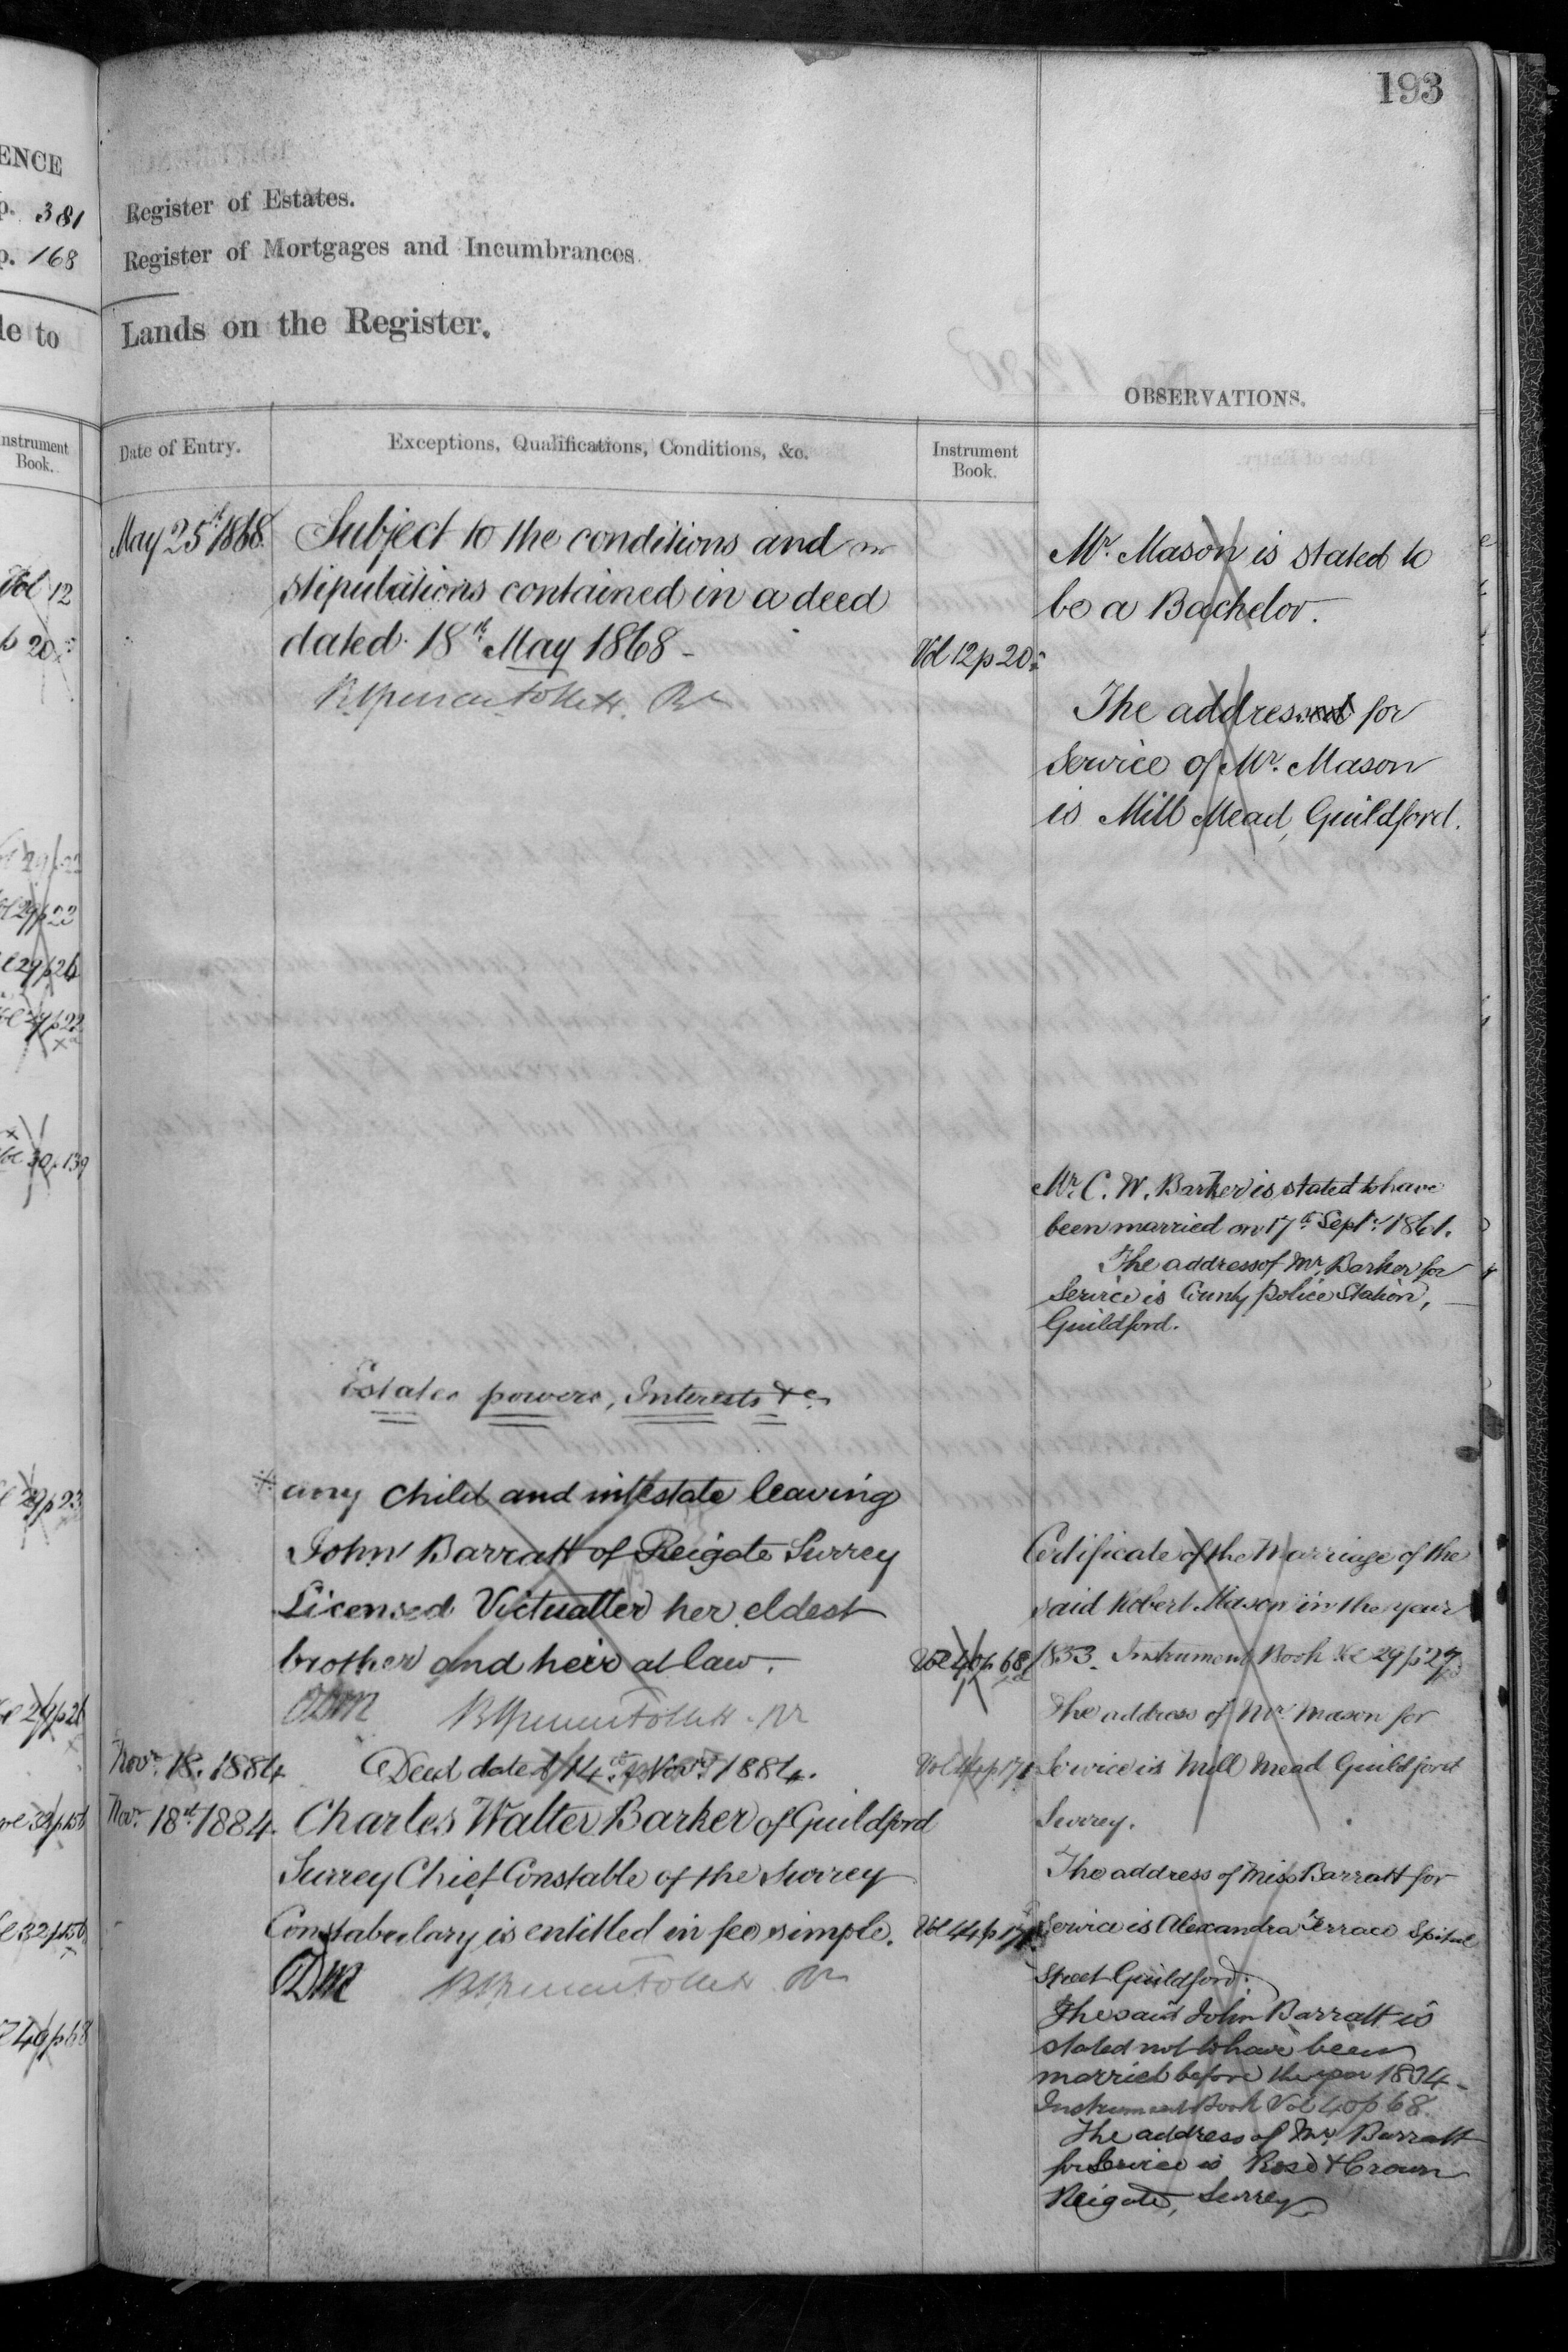 193
ENCE
p. 381
p. 168
le to
Instrument
Book.
Vol 12
p 20
Vol 29 p 22
Vol 29 p 23
Vol 29 p 26
Vol 29 p 22
Vol 30 p 139
Vol 29 p 23
Vol 29 p 26
Vol 32 p 156
Vol 32 p 156
Vol 40 p 68
Register of Estates.
Register of Mortgages and Incumbrances.
Lands on the Register.
Date of Entry.
Exceptions, Qualifications, Conditions, &c.
Instrument
Book.
May 25th 1868. Subject to the conditions and
stipulations contained in a deed
dated 18th May 1868 - Vol 12 p 20
Estates powers, Interests &c
any child and intestate leaving
John Barratt of Reigate Surrey
Licensed Victualler her eldest
brother and heir at law. Vol 40 p 68
Novr. 18. 1884 Deed dated 14th Novr. 1884. Vol 44 p 171
Novr 18th 1884. Charles Walter Barker of Guildford
Surrey Chief Constable of the Surrey
Constabulary is entitled in fee simple. Vol 44 p 171
OBSERVATIONS.
Mr. Mason is stated to
be a Bachelor.
The address for
Service of Mr. Mason
is Mill Mead, Guildford.
Mr. C. W. Barker is stated to have
been married on 17th Septr. 1861.
The address of Mr. Barker for
Service is County Police Station,
Guildford.
Certificate of the Marriage of the
said Robert Mason in the year
1853. Instrument Book Vol 29 p 27
The address of Mr. Mason for
Service is Mill Mead Guildford
Surrey.
The address of Miss Barratt for
Service is Alexandra Terrace Spital
Street Guildford.
The said John Barratt is
stated not to have been
married before the year 1834 -
Instrument Book Vol 40 p 68.
The address of Mr. Barratt
for Service is Rose & Crown
Reigate, Surrey